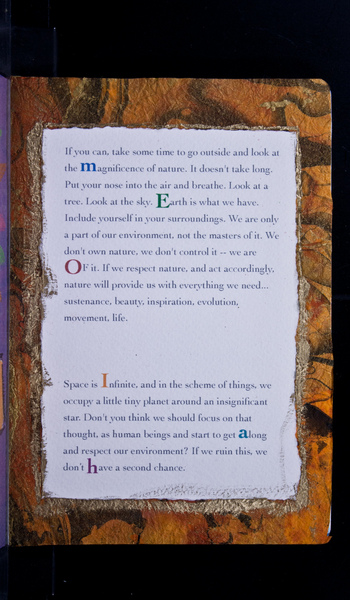 If you can, take some time to go outside and look at
the magnificence of nature. It doesn't take long.
Put your nose into the air and breathe. Look at a
tree. Look at the sky. Earth is what we have.
Include yourself in your surroundings. We are only
a part of our environment, not the masters of it. We
don't own nature, we don't control it -- we are
OF it. If we respect nature, and act accordingly,
nature will provide us with everything we need...
sustenance, beauty, inspiration, evolution,
movement, life.
Space is Infinite, and in the scheme of things, we
occupy a little tiny planet around an insignificant
star. Don't you think we should focus on that
thought, as human beings and start to get along
and respect our environment? If we ruin this, we
don't have a second chance.